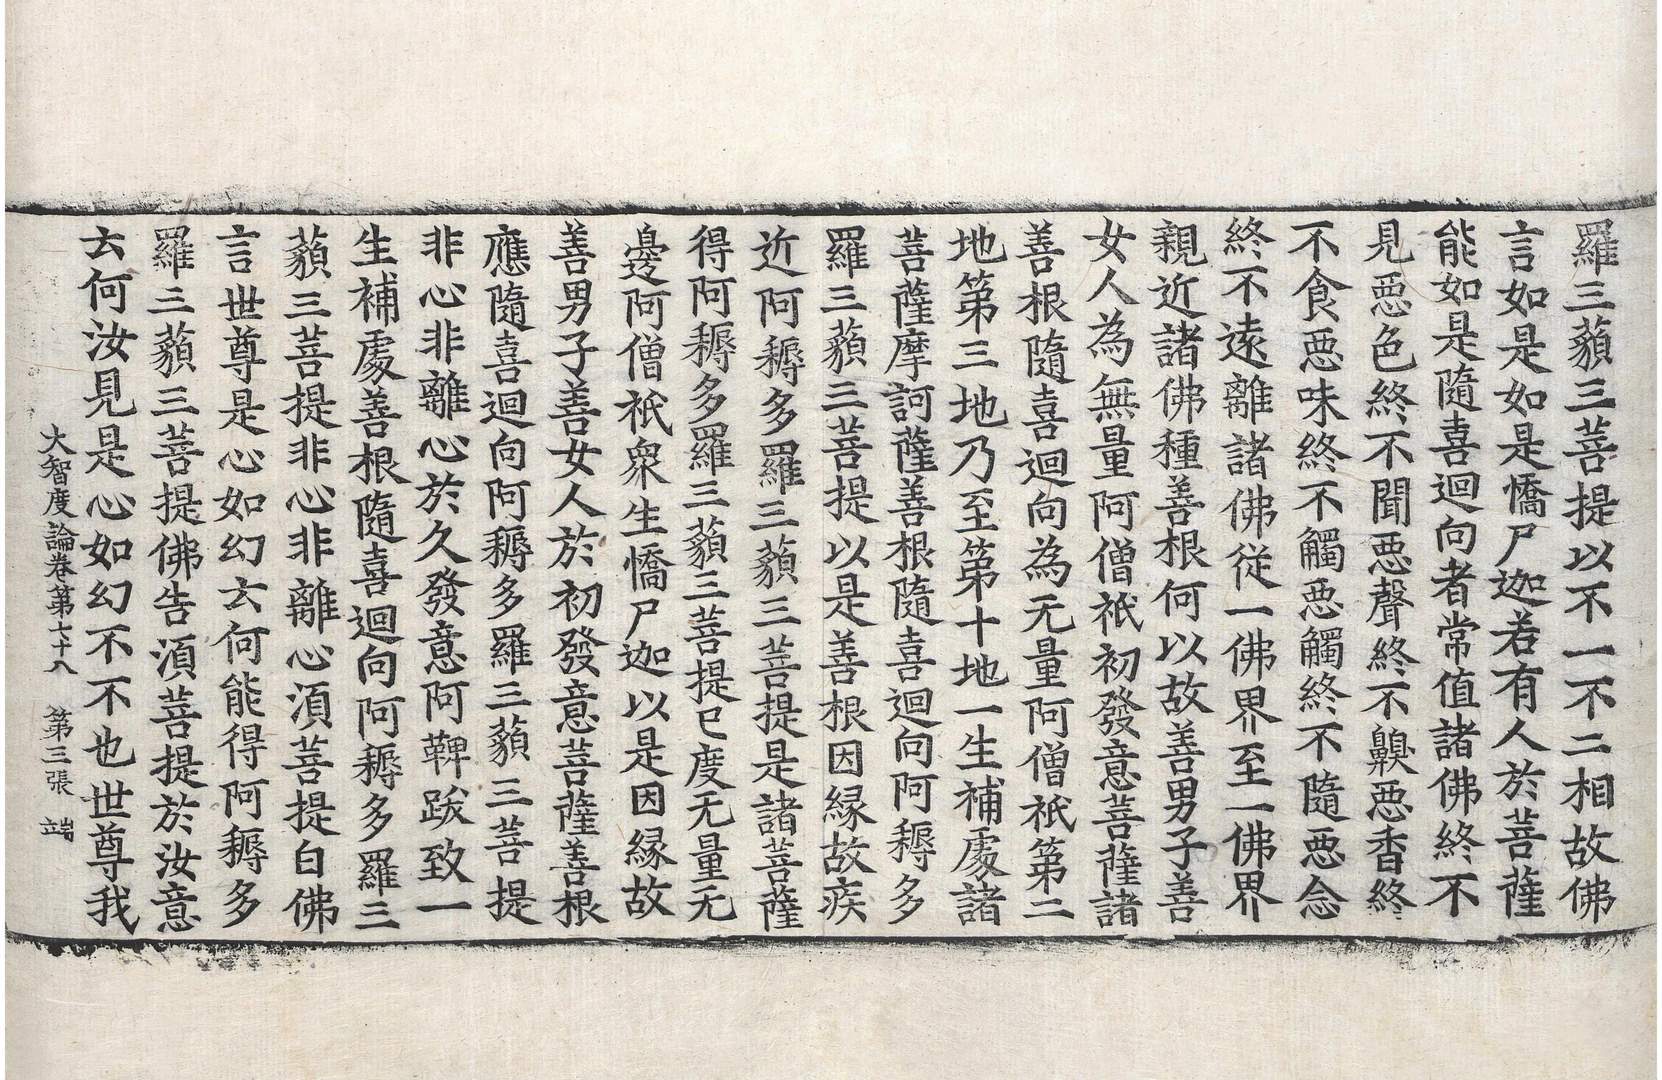 羅三藐三菩提以不一不二相故佛
言如是如是憍尸迦若有人於菩薩
能如是隨喜迴向者常值諸佛終不
見惡色終不聞惡聲終不齅惡香終
不食惡味終不觸惡觸終不隨惡念
終不遠離諸佛從一佛界至一佛界
親近諸佛種善根何以故善男子善
女人為無量阿僧祇初發意菩薩諸
善根隨喜迴向為无量阿僧祇第二
地第三地乃至第十地一生補處諸
菩薩摩訶薩善根隨喜迴向阿耨多
羅三藐三菩提以是善根因緣故疾
近阿耨多羅三藐三菩提是諸菩薩
得阿耨多羅三藐三菩提已度无量无
邊阿僧祇眾生憍尸迦以是因緣故
善男子善女人於初發意菩薩善根
應隨喜迴向阿耨多羅三藐三菩提
非心非離心於久發意阿鞞跋致一
生補處善根隨喜迴向阿耨多羅三
藐三菩提非心非離心湏菩提白佛
言世尊是心如幻云何能得阿耨多
羅三藐三菩提佛告湏菩提於汝意
云何汝見是心如幻不不也世尊我
大智度論卷第七十八 第三張 端